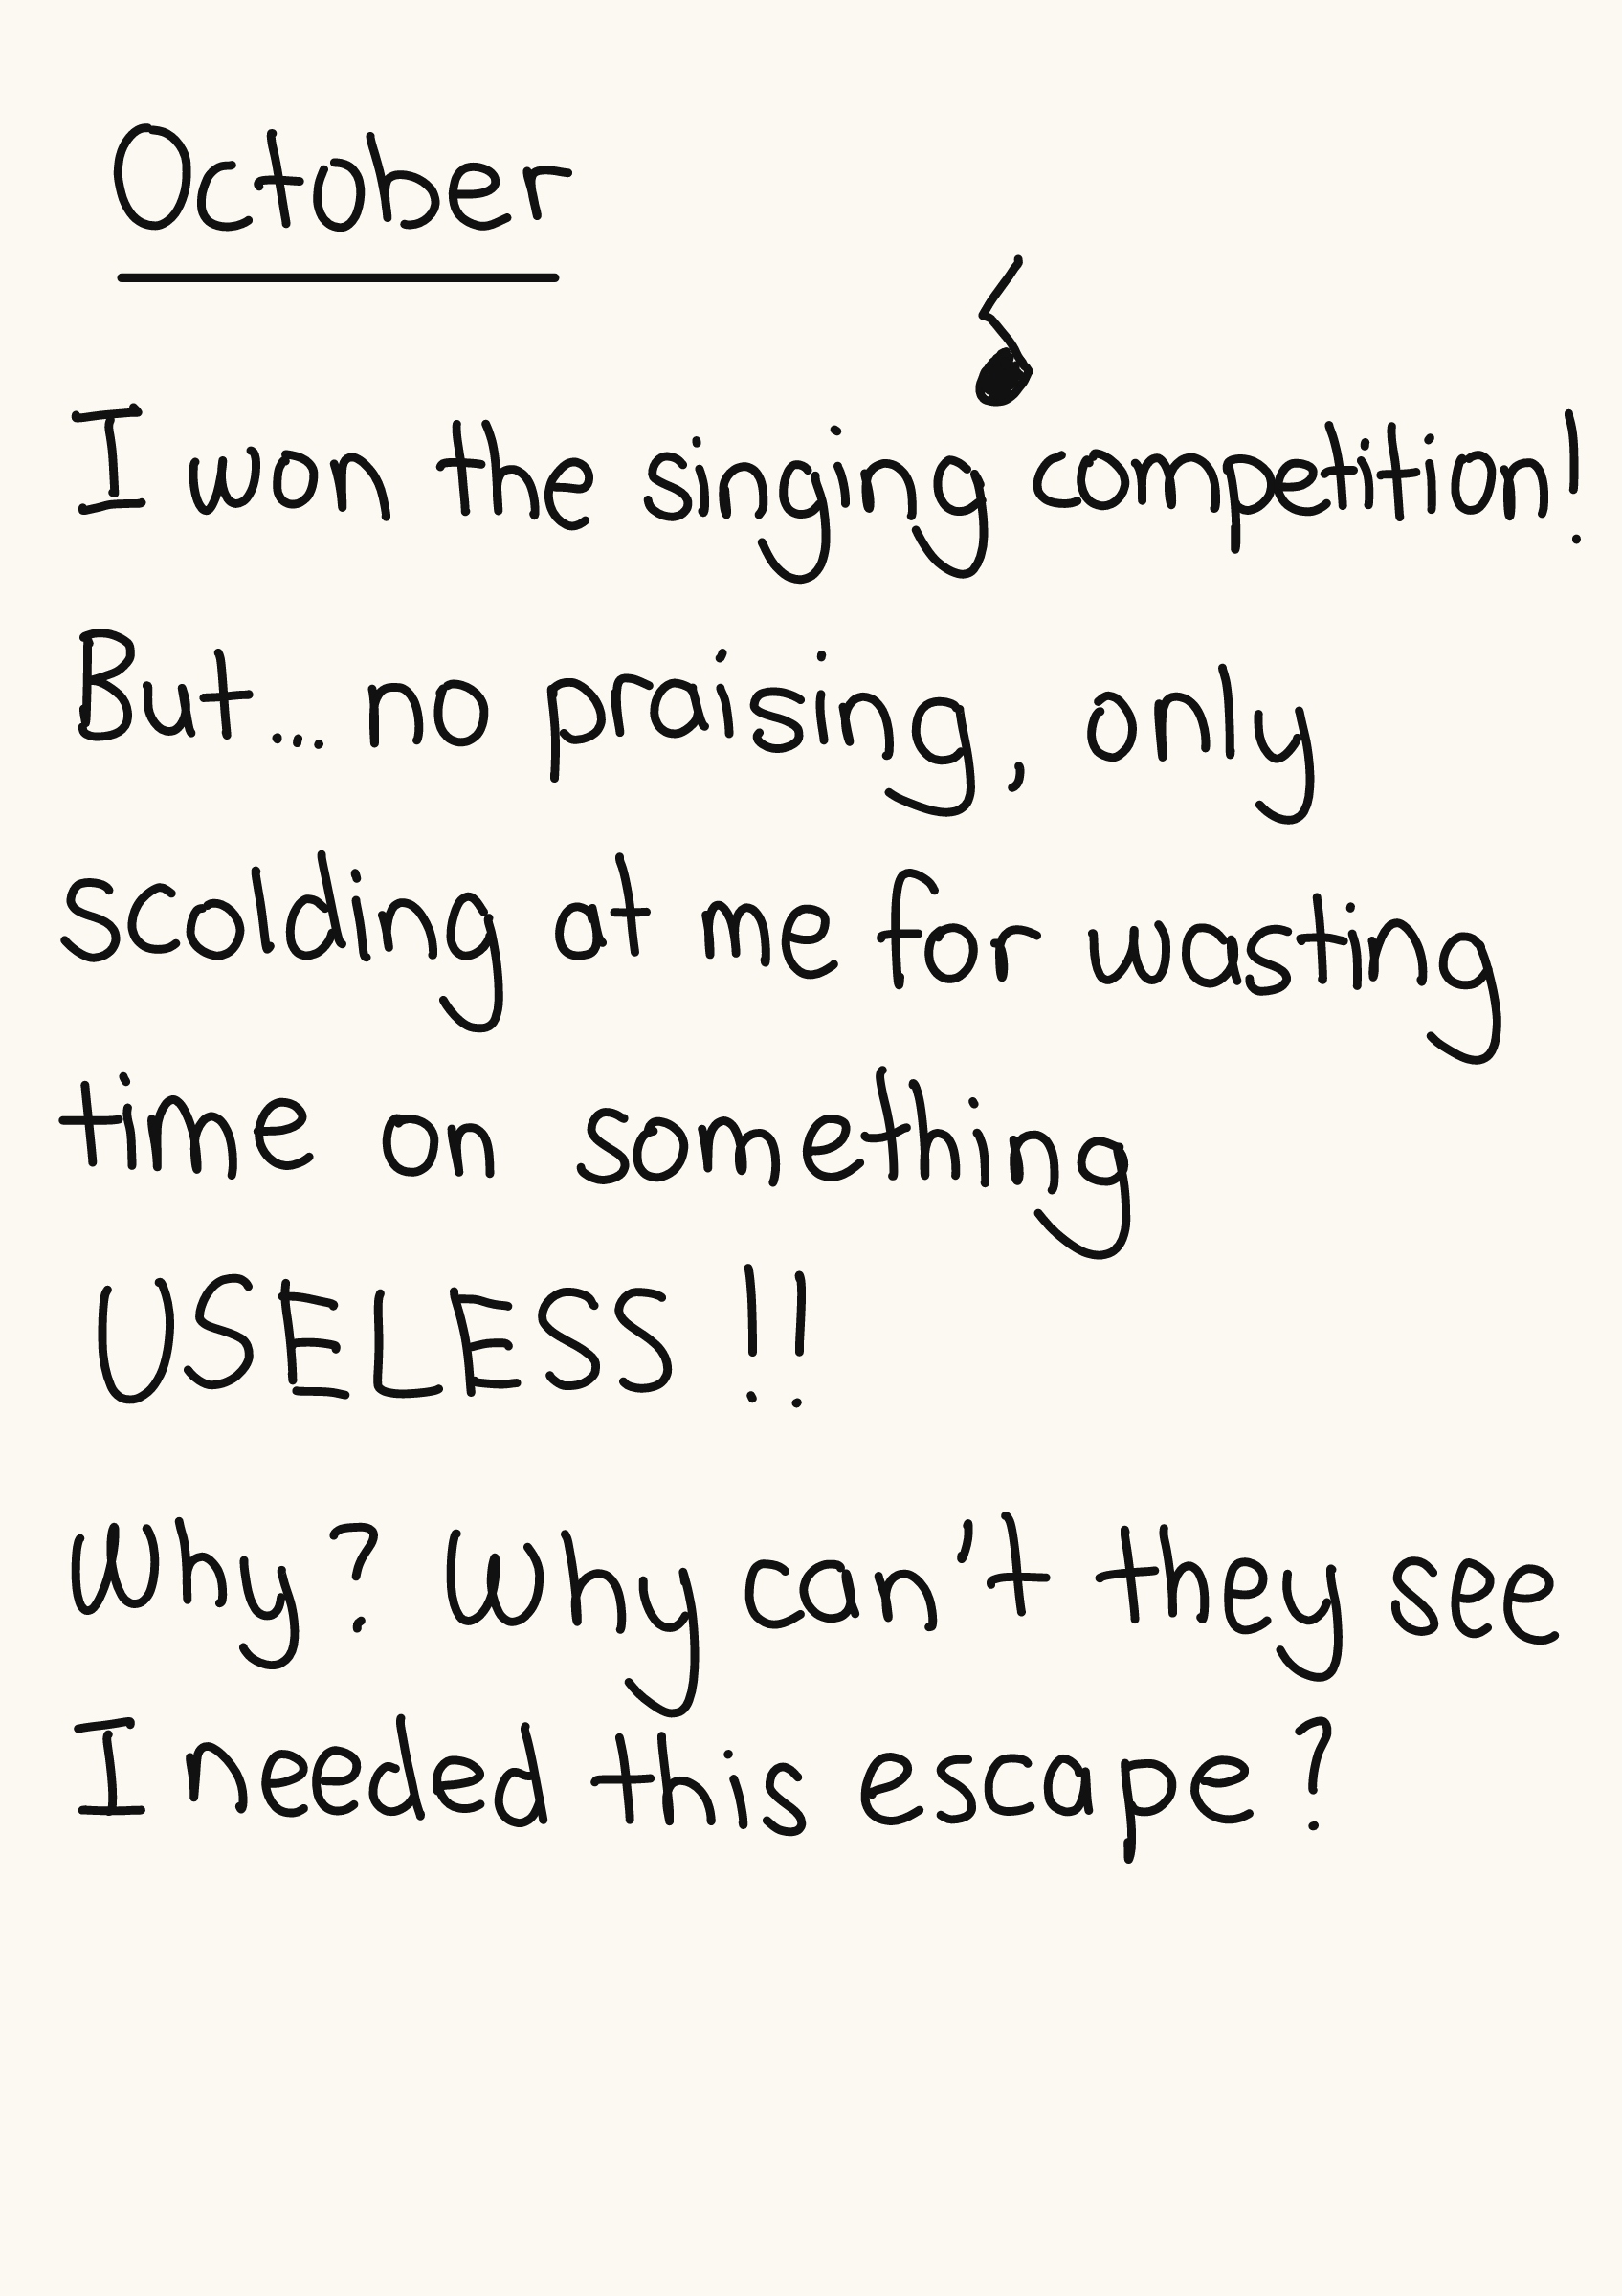 October
I won the singing competition!
But... no praising, only
scolding at me for wasting
time on something
USELESS !!
Why? Why can't they see
I needed this escape?